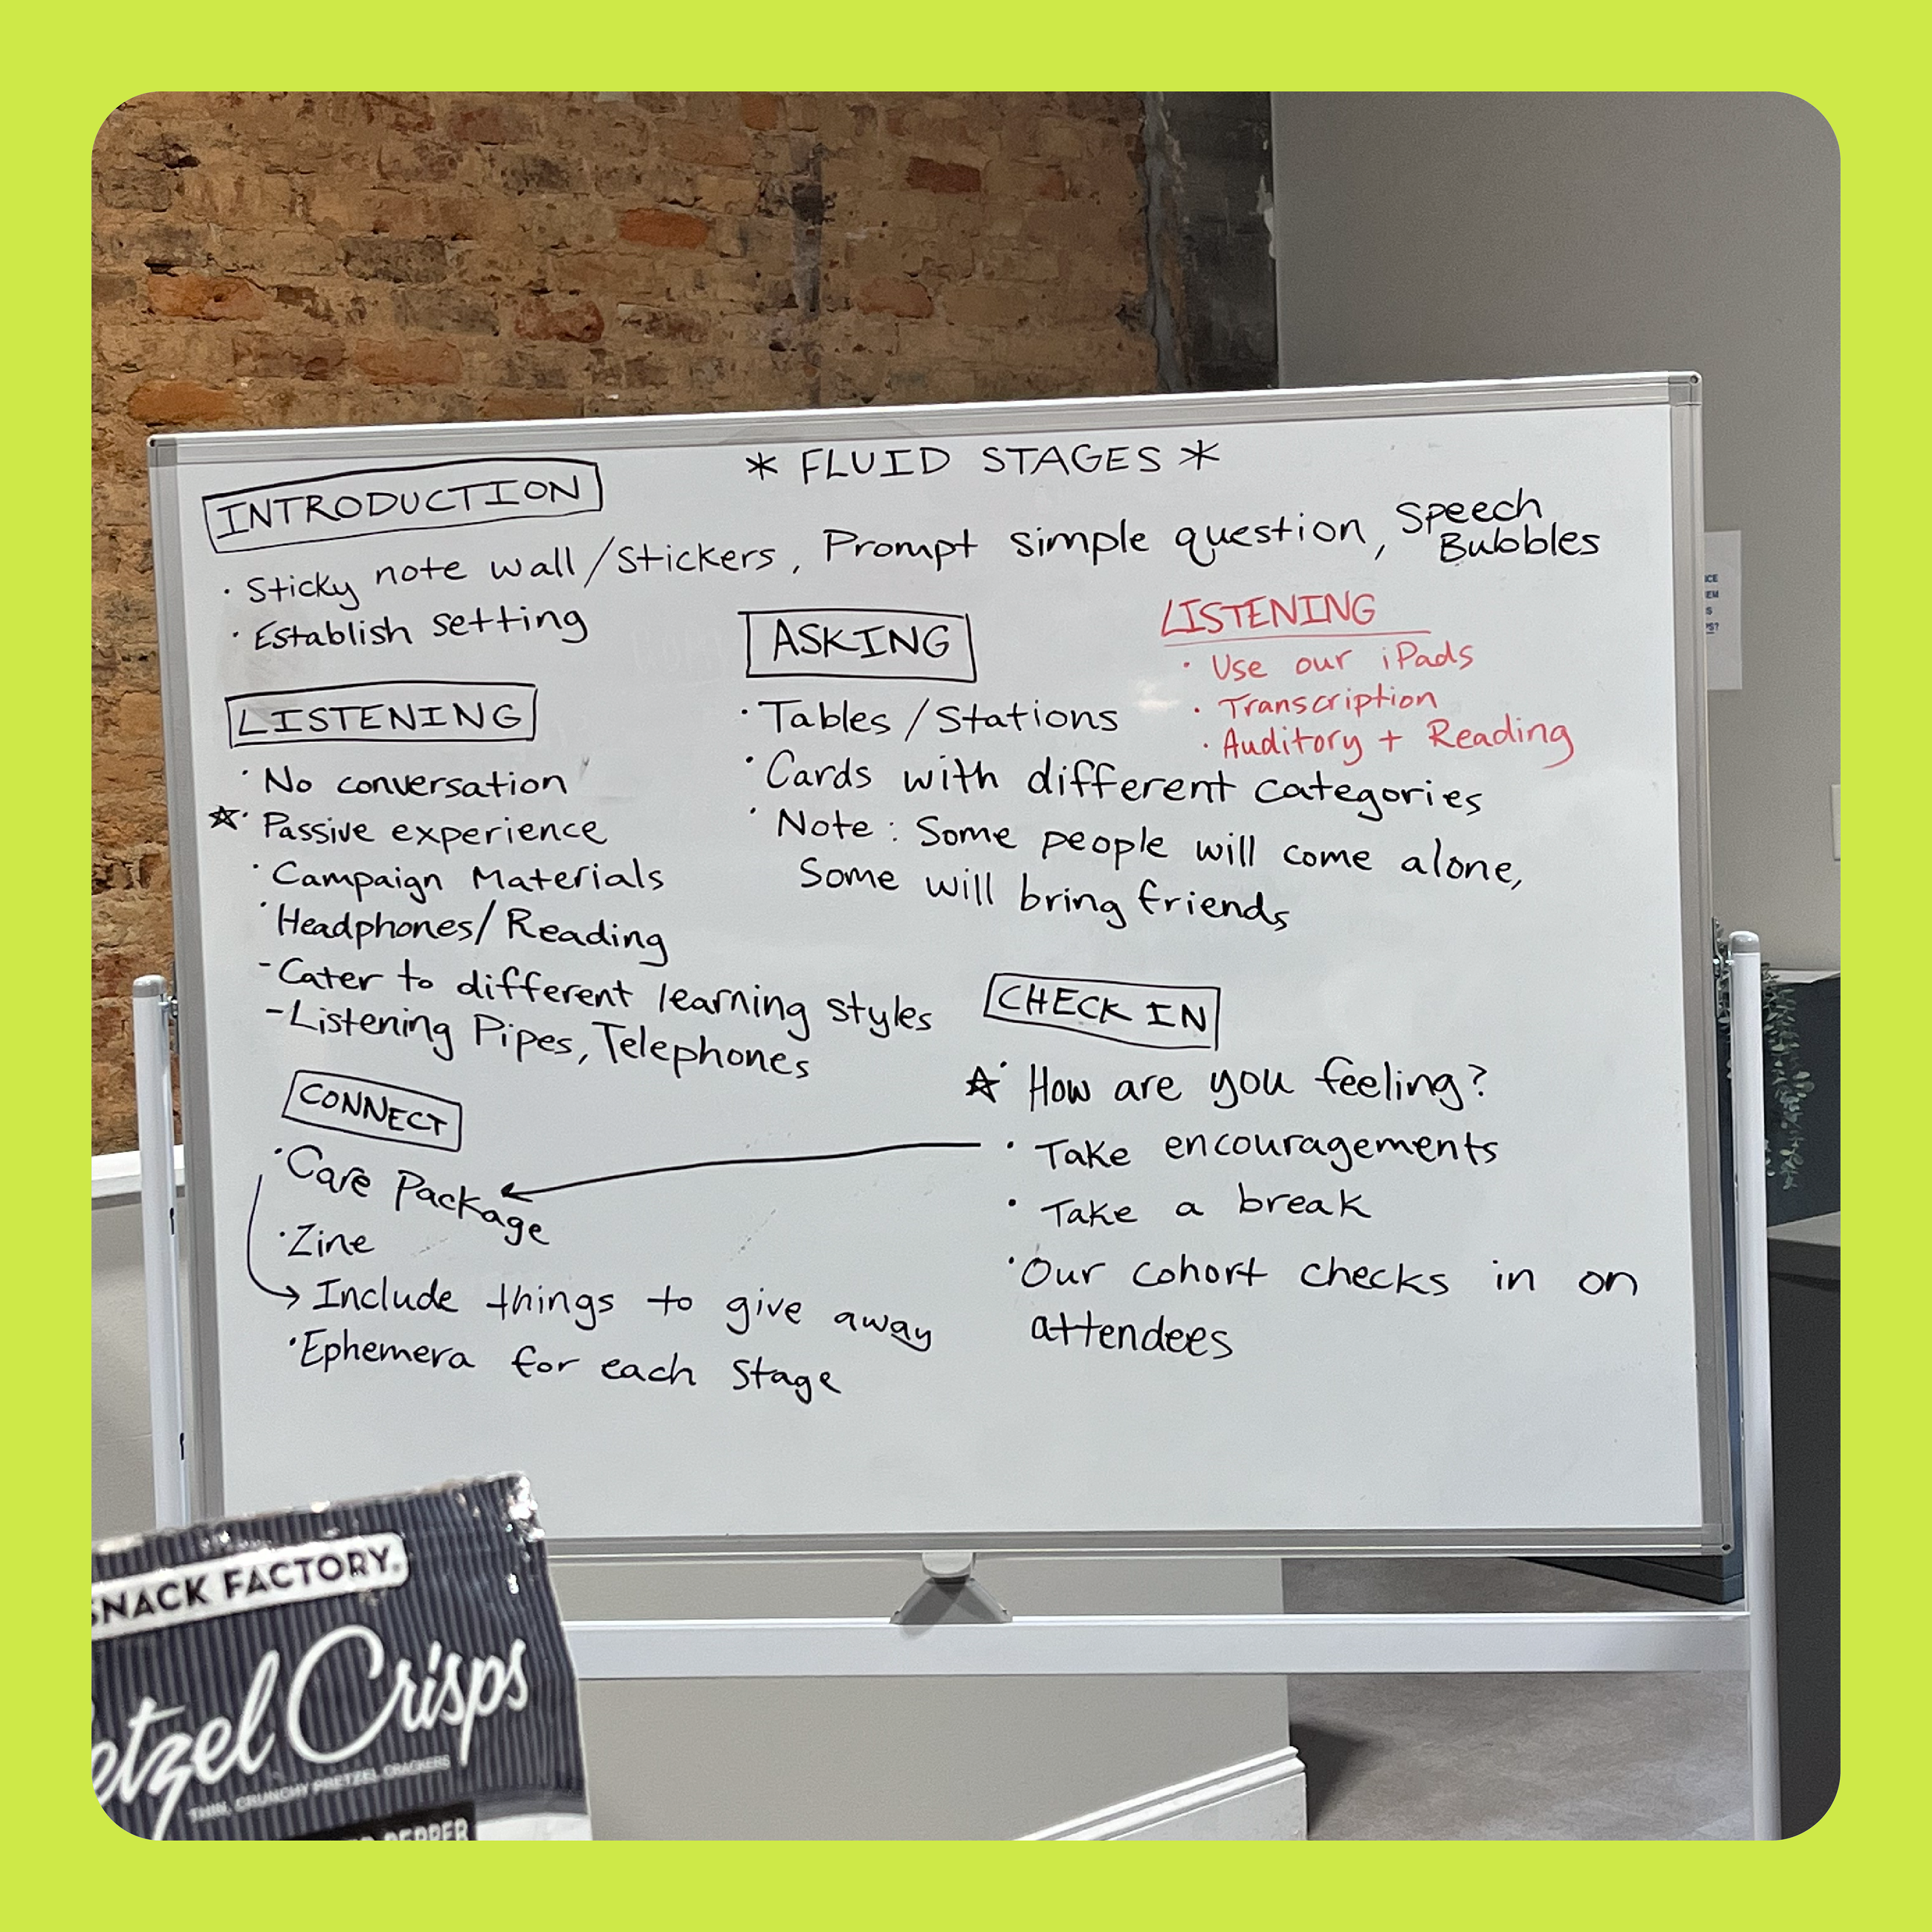 * FLUID STAGES *
INTRODUCTION
· Sticky note wall/Stickers, Prompt simple question, Speech Bubbles
· Establish setting
LISTENING
· No conversation
☆· Passive experience
· Campaign Materials
· Headphones/Reading
- Cater to different learning styles
- Listening Pipes, Telephones
ASKING
· Tables/Stations
· Cards with different categories
· Note: Some people will come alone,
Some will bring friends
LISTENING
· Use our iPads
· Transcription
· Auditory + Reading
CONNECT
· Care Package
· Zine
→ Include things to give away
· Ephemera for each Stage
CHECK IN
☆· How are you feeling?
· Take encouragements
· Take a break
· Our cohort checks in on
attendees
SNACK FACTORY
Crisps
THIN, CRUNCHY PRETZEL CRACKERS
PEPPER